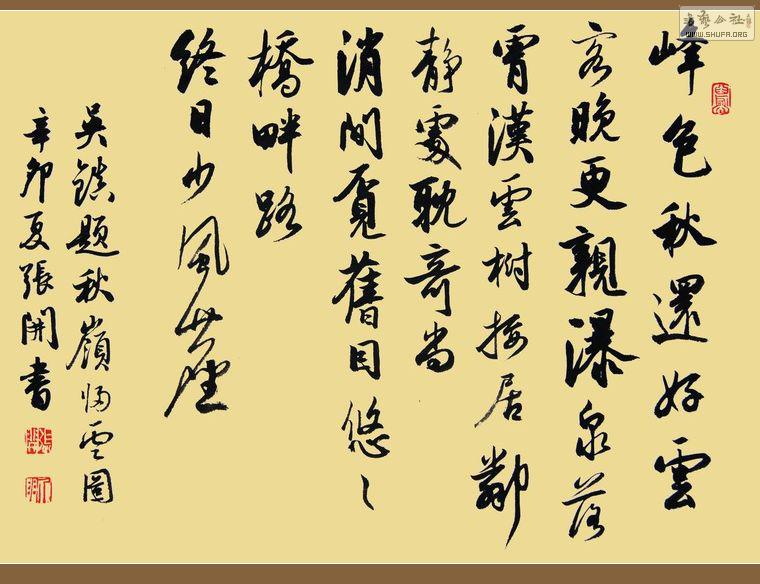 峰色秋還好雲
容晚更親瀑泉落
霄漢雲樹接居鄰
靜處耽奇尚
消閒覓舊因悠〻
橋畔路
終日少風塵
吳鎮題秋嶺歸雲圖
辛卯夏張開書
WWW.SHUFA.ORG